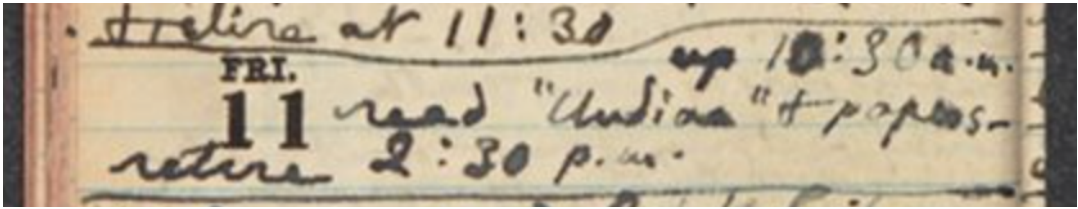 & retire at 11:30
up 10:30 a.m.
FRI.
11 read "Undine" & papers-
retire 2:30 p.m.